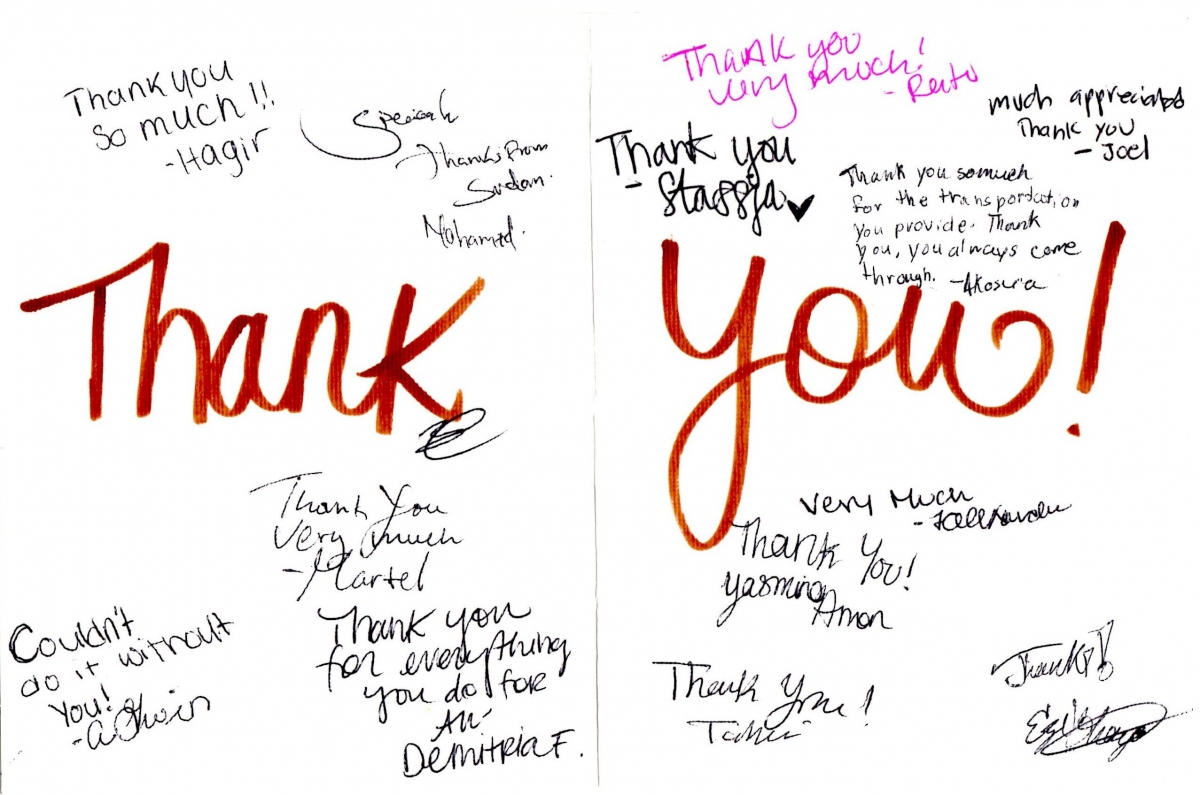 Thank you
so much!!
-Hagir
Special
Thanks from
Sudan.
Mohamed.
Thank
Thank You
Very much
-Martel
Couldn't
do it without
You!
Thank you
for everything
you do for
All-
Demitria F.
Thank you
very much!
much appreciated
Thank you
- Joel
Thank you
- Stassja
Thank you so much
for the transportation
you provide. Thank
you, you always come
through. -Akosua
you!
Very Much
Thank You!
Yasmina
Amon
Thank You!
Thanks!